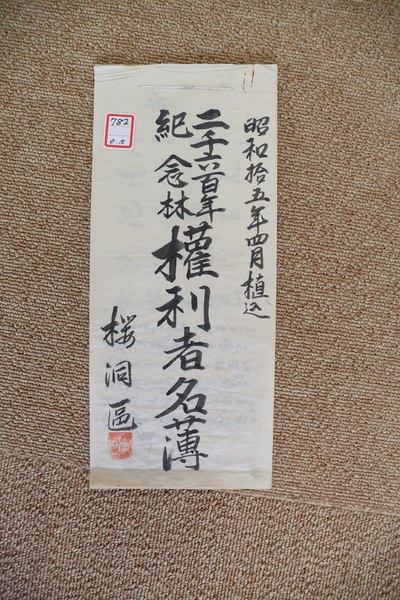 昭和拾五年四月植込
二千六百年
紀念林
權利者名薄
桜洞區
782